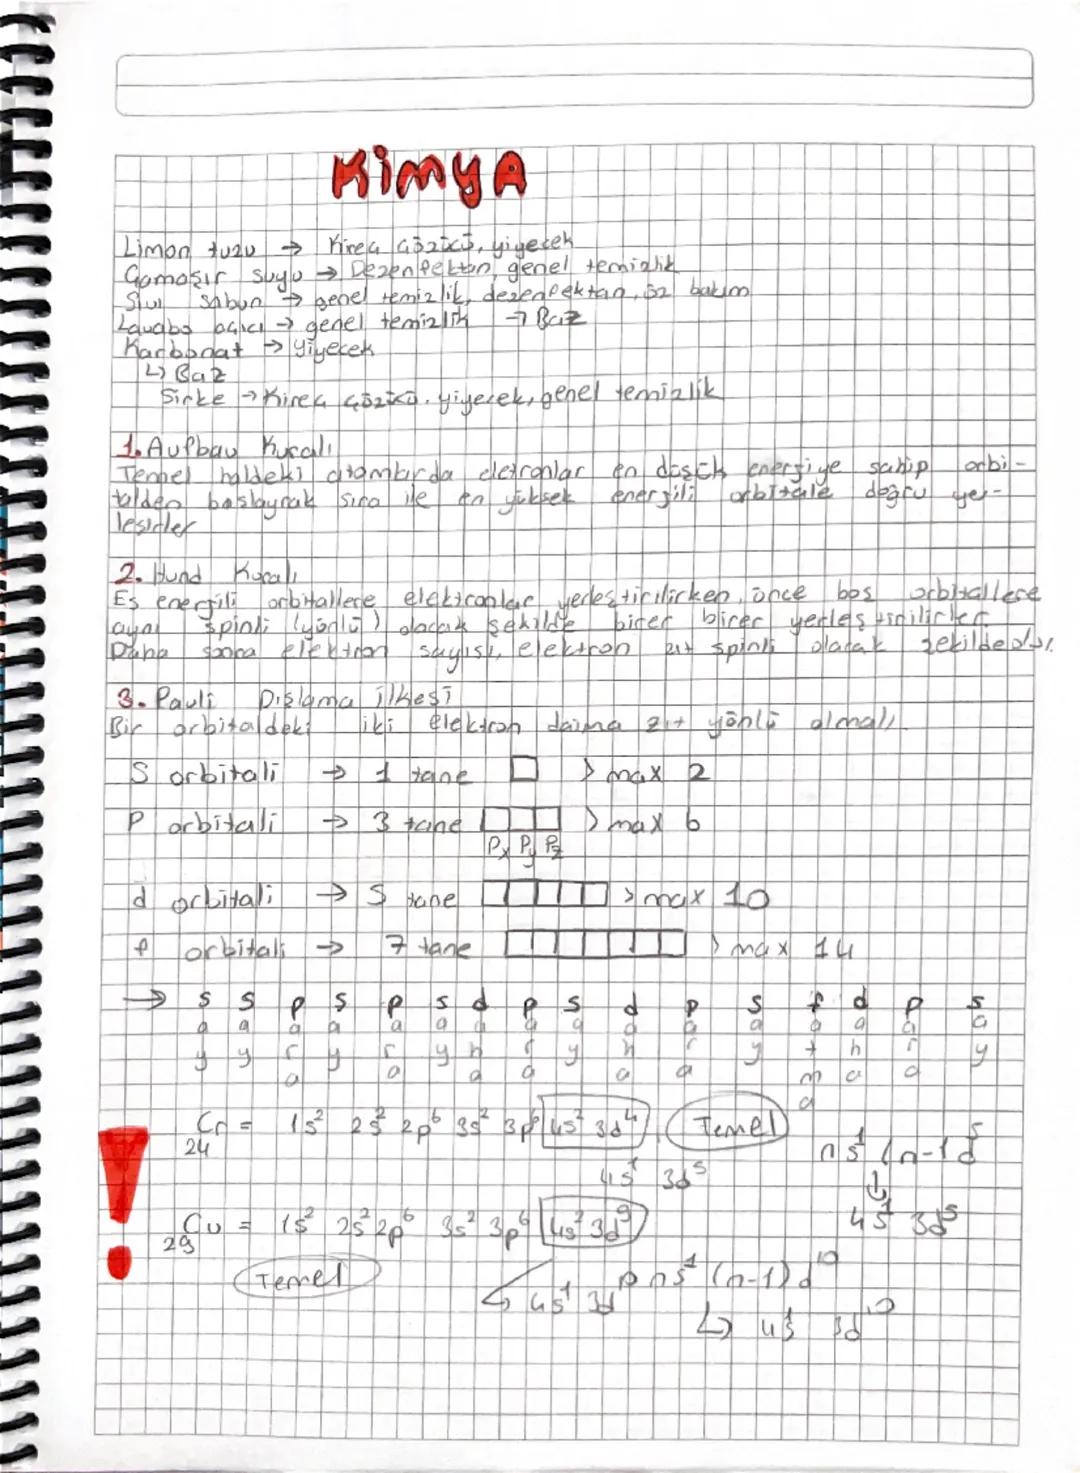 KimyA
Limon tuzu → Kireç çözücü, yiyecek
Çamaşır suyu → Dezenfektan, genel temizlik
Sıvı sabun → genel temizlik, dezenfektan, öz bakım
Lavabo açıcı → genel temizlik → Baz
Karbonat → yiyecek
↳ Baz
Sirke → Kireç çözücü, yiyecek, genel temizlik
1. Aufbau Kuralı
Temel haldeki atomlarda eletronlar en düşük enerjiye sahip orbi-
talden başlayrak sıra ile en yüksek enerjili orbitale doğru yer-
leşirler
2. Hund Kuralı
Eş enerjili orbitallere elektronlar yerleştirilirken, önce boş orbitallere
aynı spinli (yönlü) olacak şekilde birer birer yerleştirilirler.
Daha sonra elektron sayısı, elektron zıt spinli olacak şekilde olur.
3. Pauli Dışlama İlkesi
Bir orbitaldeki iki elektron daima zıt yönlü olmalı
S orbitali → 1 tane > max 2
P orbitali → 3 tane > max 6
Px Py Pz
d orbitali → 5 tane > max 10
f orbitali → 7 tane > max 14
→ say say para say para say daha para say daha para say fatma daha para say
24Cr = 1s² 2s² 2p⁶ 3s² 3p⁶ 4s² 3d⁴ Temel
4s¹ 3d⁵
ns¹ (n-1d⁵
↓
4s¹ 3d⁵
29Cu = 1s² 2s² 2p⁶ 3s² 3p⁶ 4s² 3d⁹
Temel
↳ 4s¹ 3d¹⁰
ns¹ (n-1)d¹⁰
↳ 4s¹ 3d¹⁰